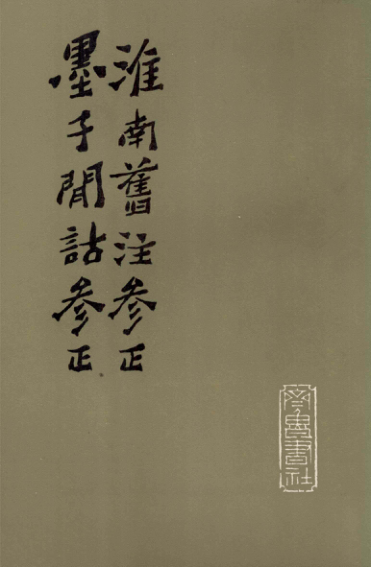 淮南舊注參正
墨子閒詁參正
齊魯書社